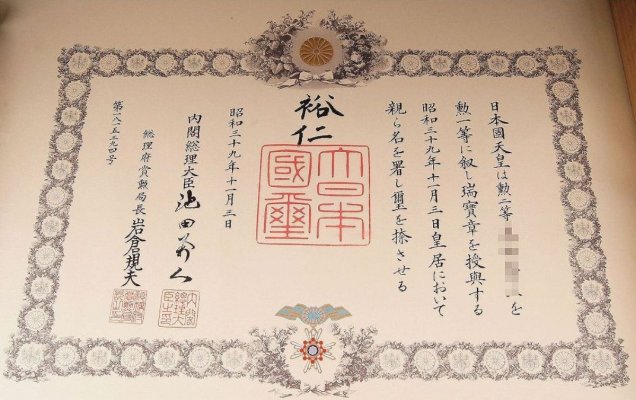 日本國天皇は勲二等を
勲一等に叙し瑞寶章を授與する
昭和三十九年十一月三日皇居において
親ら名を署し璽を捺させる
裕仁
大日本國璽
昭和三十九年十一月三日
内閣総理大臣池田勇人
総理府賞勲局長岩倉規夫
第一八一五三九四号